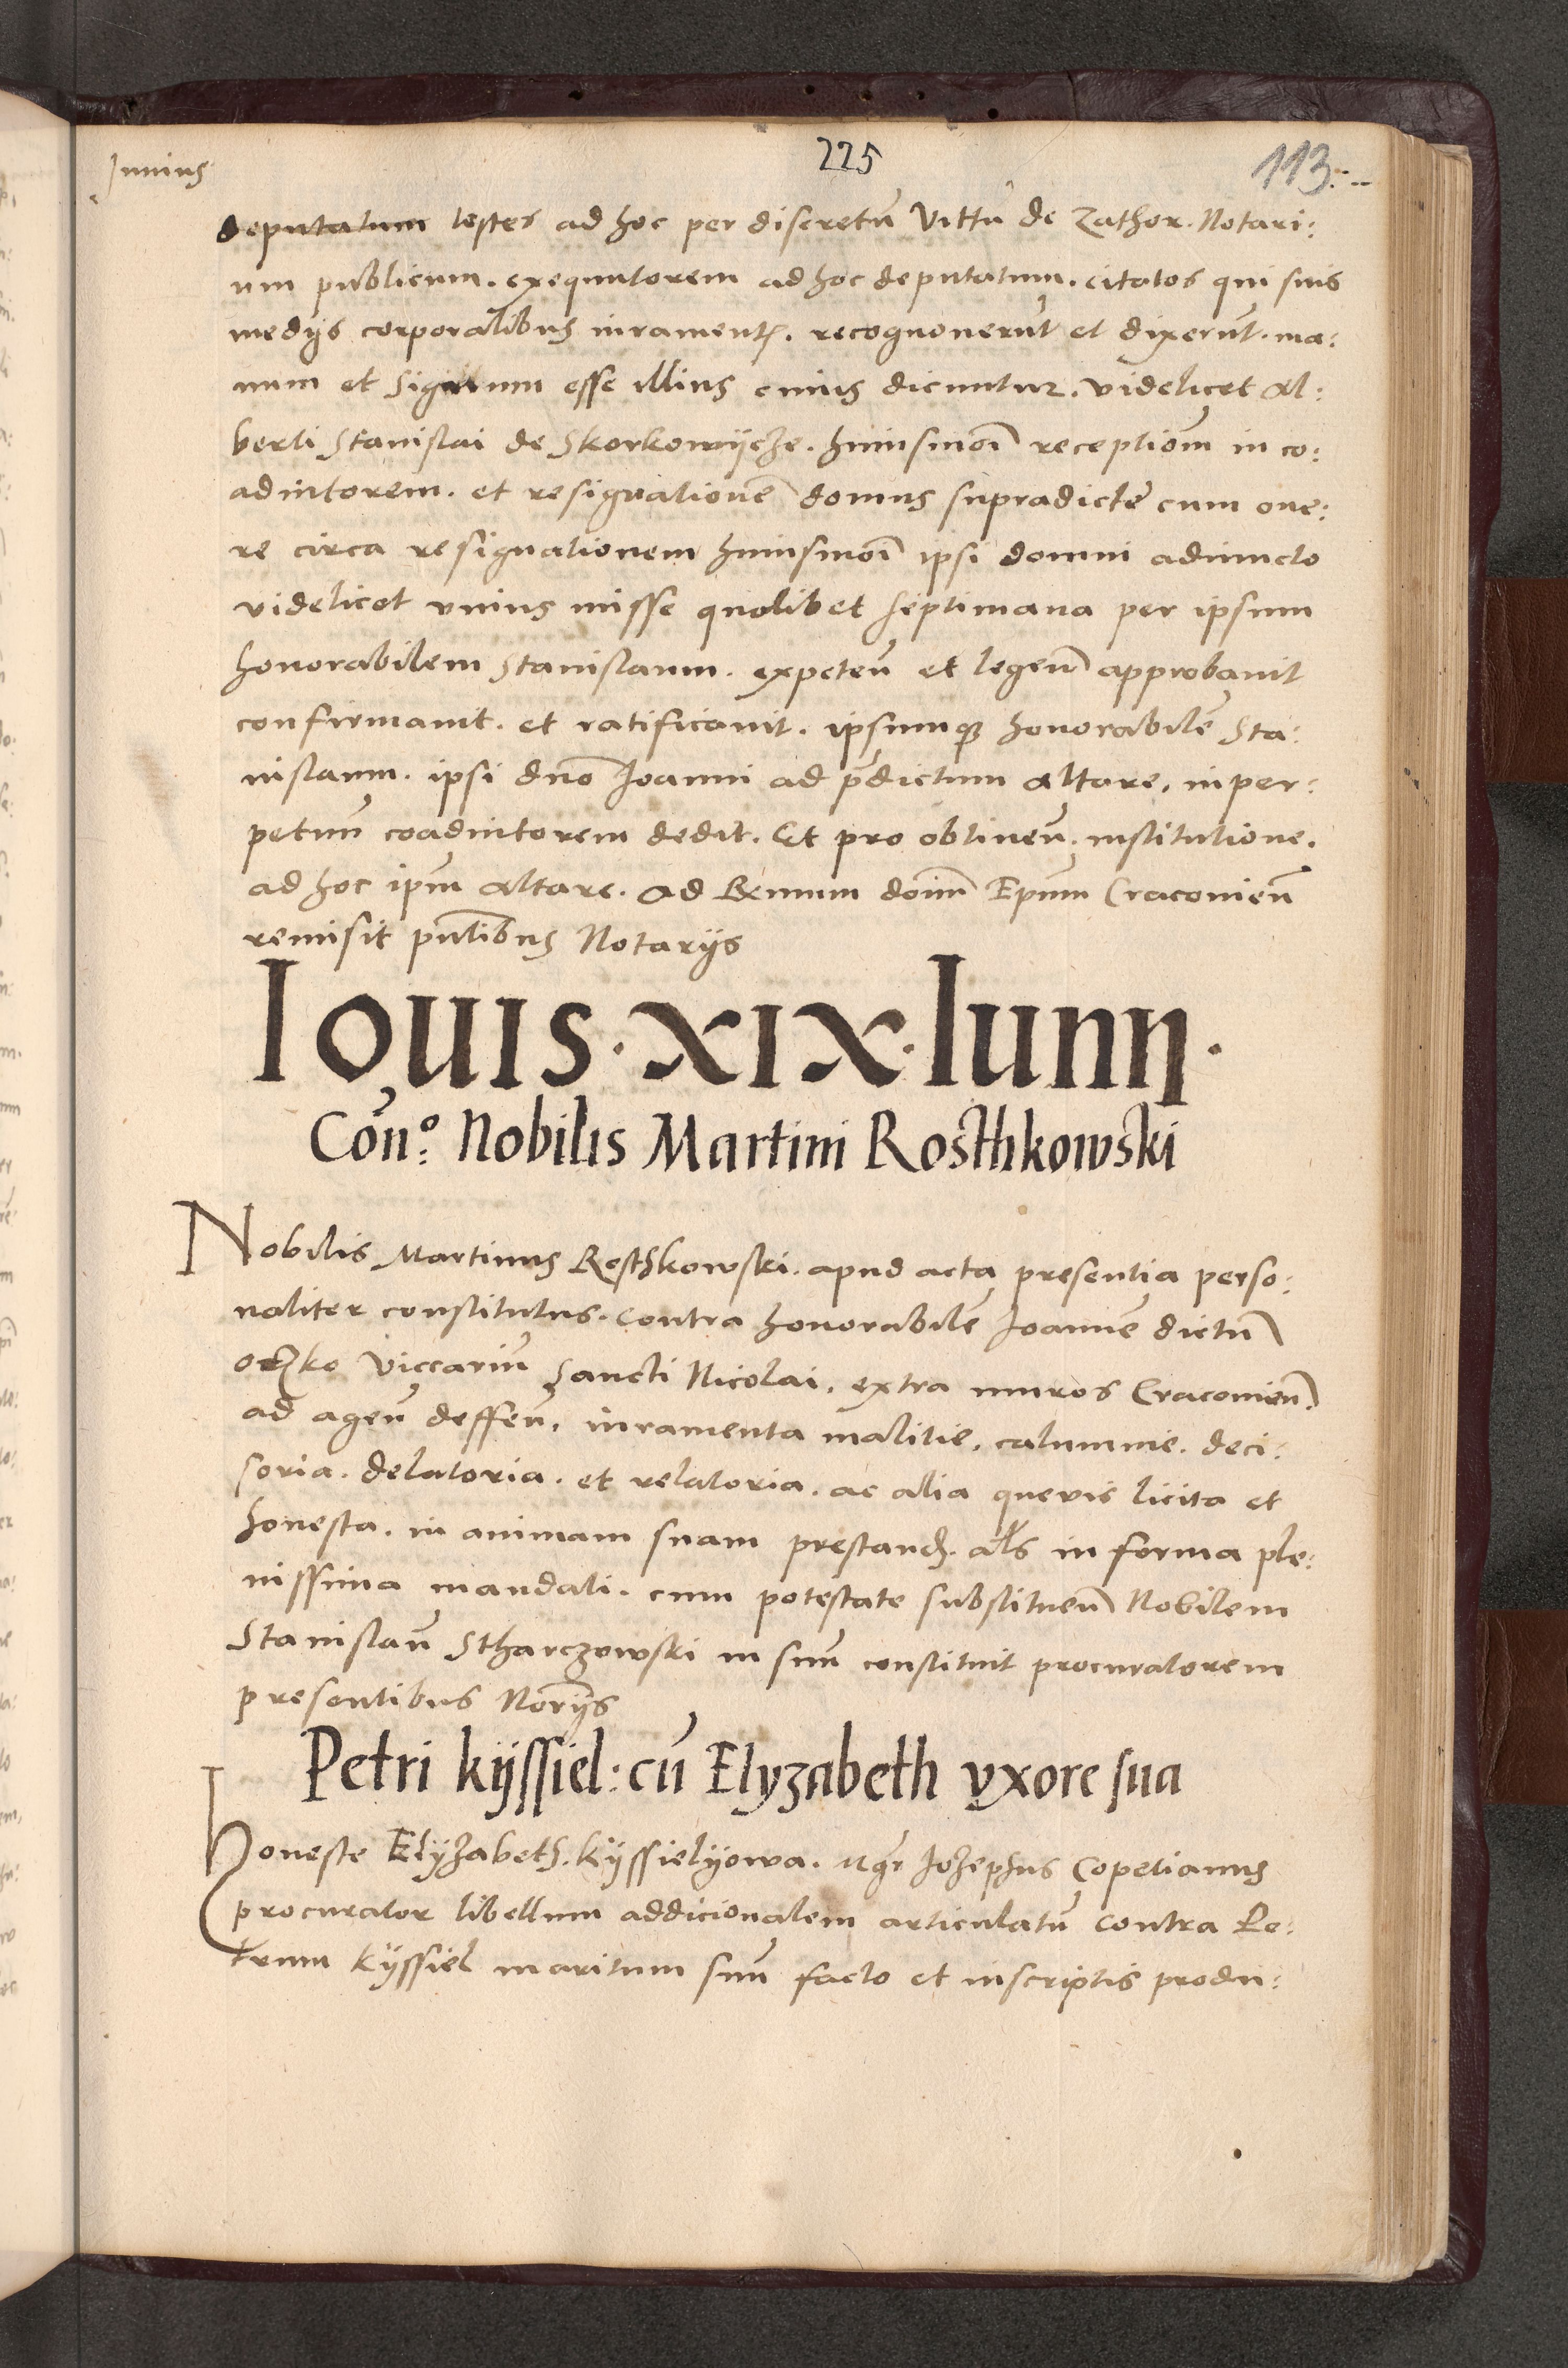 Junius
225
113
deputatum testes ad hoc per discretū Vittū de Zathor. Notari:
um publicum. exequutorem ad hoc deputatum. citatos qui suis
medijs corporalibus iurament. recognouerūt et dixerūt. ma:
num et signum esse illius cuius dicuntur. videlicet Al:
berti Stanislai de Skorkowijcze. huiusmoī receptiōm in co:
adiutorem. et resignationē domus supradicte cum one:
re circa resignationem huiusmoī ipsi domui adiuncto
videlicet vnius misse qualibet septimana per ipsum
honorabilem Stanislaum. expeteñ et legeñ approbauit
confirmauit. et ratificauit. ipsumqꝫ honorabilē Sta:
nislaum. ipsi dno Joanni ad p̄dictum altare. in per:
petuū coadiutorem dedit. Et pro obtineñ. institutione.
ad hoc ipm altare. ad Rmum doim Epum Cracovieñ
remisit pntibus Notarijs
Iouis · xix · Iunij ·
Con̄º: Nobilis Martini Rosthkowski
Nobilis Martinus Rosthkowski. apud acta presentia perso:
naliter constitutus. contra honorabilē Joannē dictū
oczko viccariū Sancti Nicolai. extra muros Cracovieñ.
ad ageñ deffeñ. iuramenta malitie. calumnie. deci:
soria. delatoria. et relatoria. ac alia quevis licita et
honesta. in animam suam prestand. als in forma ple:
nissima mandati. cum potestate substitueñ Nobilem
Stanislaū Stharczowski in suū constituit procuratorem
presentibus Norijs
Petri kijssiel: cū Elyzabeth vxore sua
Honeste Elyzabeth. Kijssielijowa. Mgr Jozephus Copetianus
procurator libellum addicionalem articulatū contra Pe:
trum Kijssiel maritum suū facto et inscriptis produ: